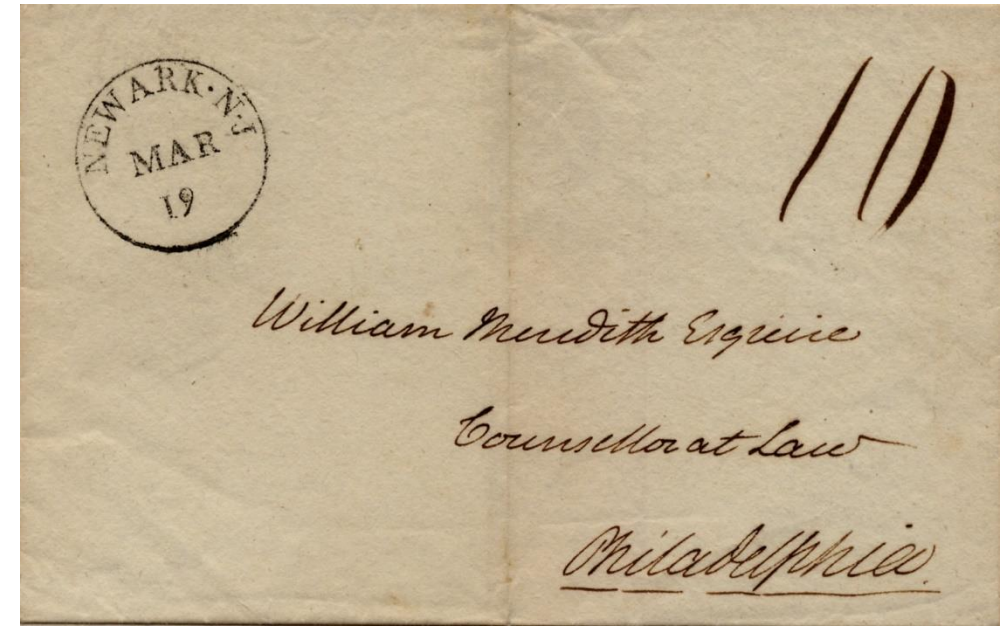 NEWARK · N·J
MAR
19
10
William Meredith Esquire
Counsellor at Law
Philadelphia.